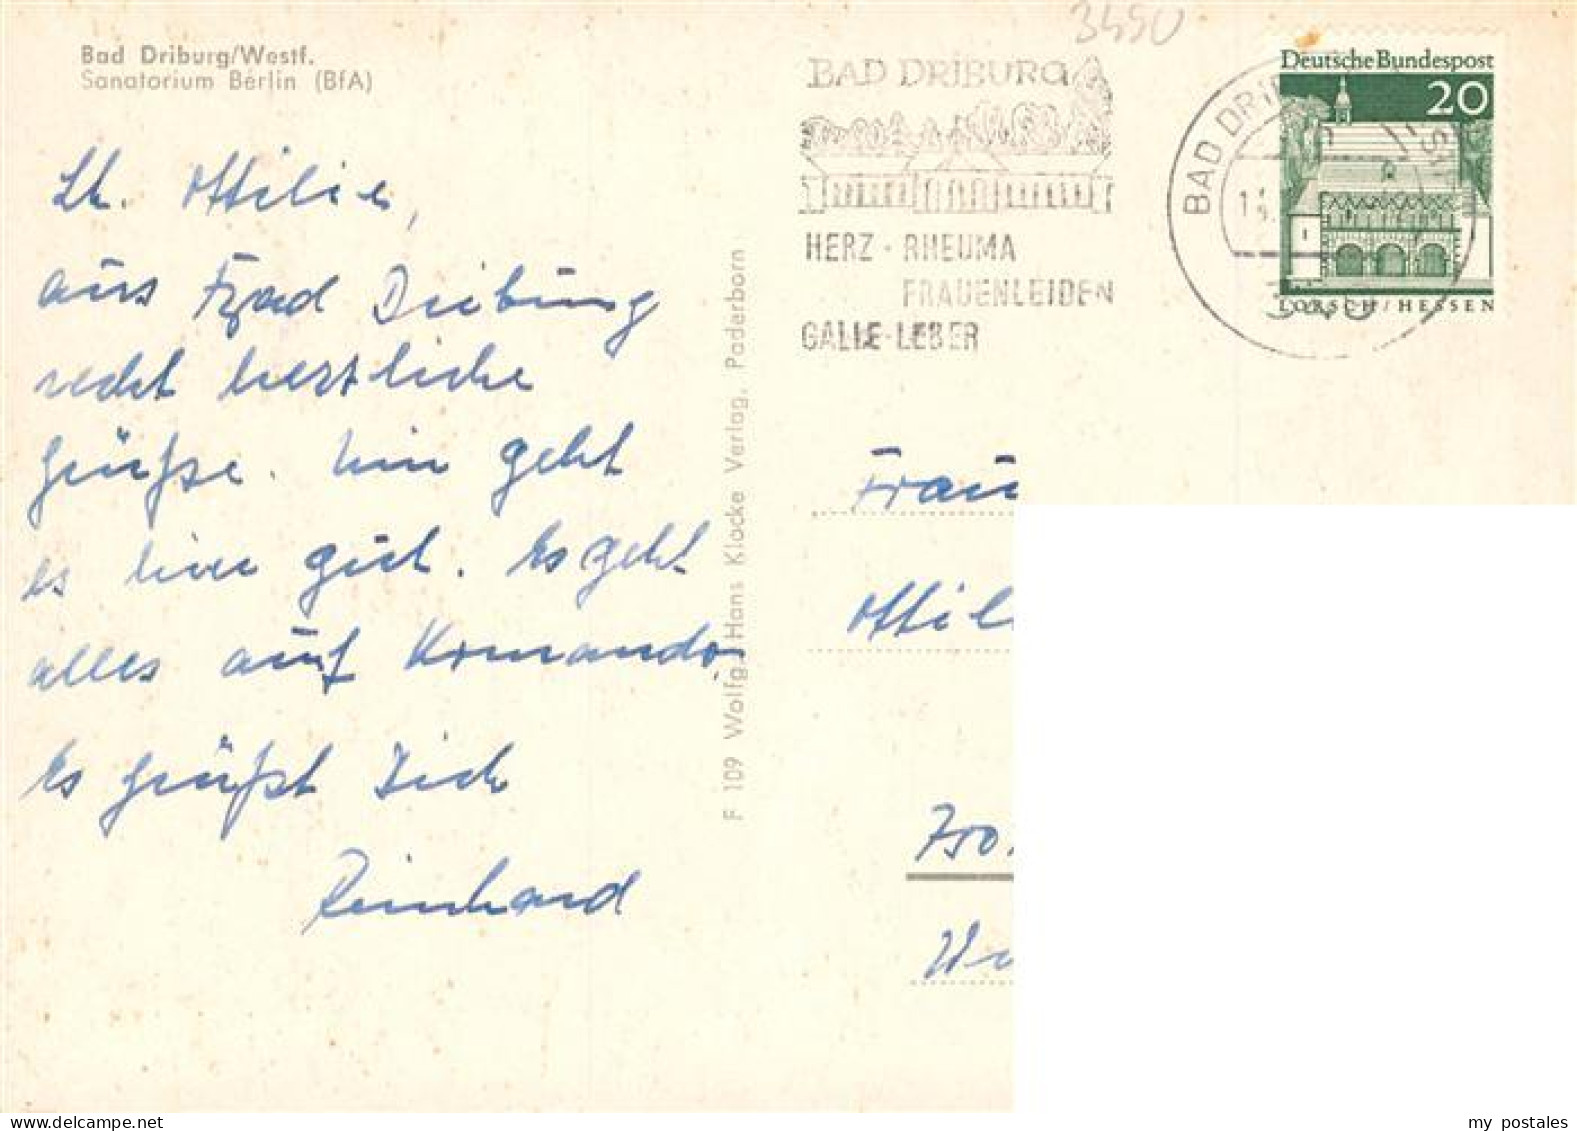 Bad Driburg/Westf.
Sanatorium Berlin (BfA)
Lb. Ottilie,
aus Bad Driburg
recht herzliche
Grüße. Mir geht
es hier gut. Es geht
alles auf Komando.
Es grüßt Dich
Reinhard
F 109 Wolfg. Hans Klocke Verlag, Paderborn
3490
BAD DRIBURG
HERZ - RHEUMA
FRAUENLEIDEN
GALLE-LEBER
BAD DRIB
Deutsche Bundespost
20
LORSCH/HESSEN
Frau
Ottil
my postales